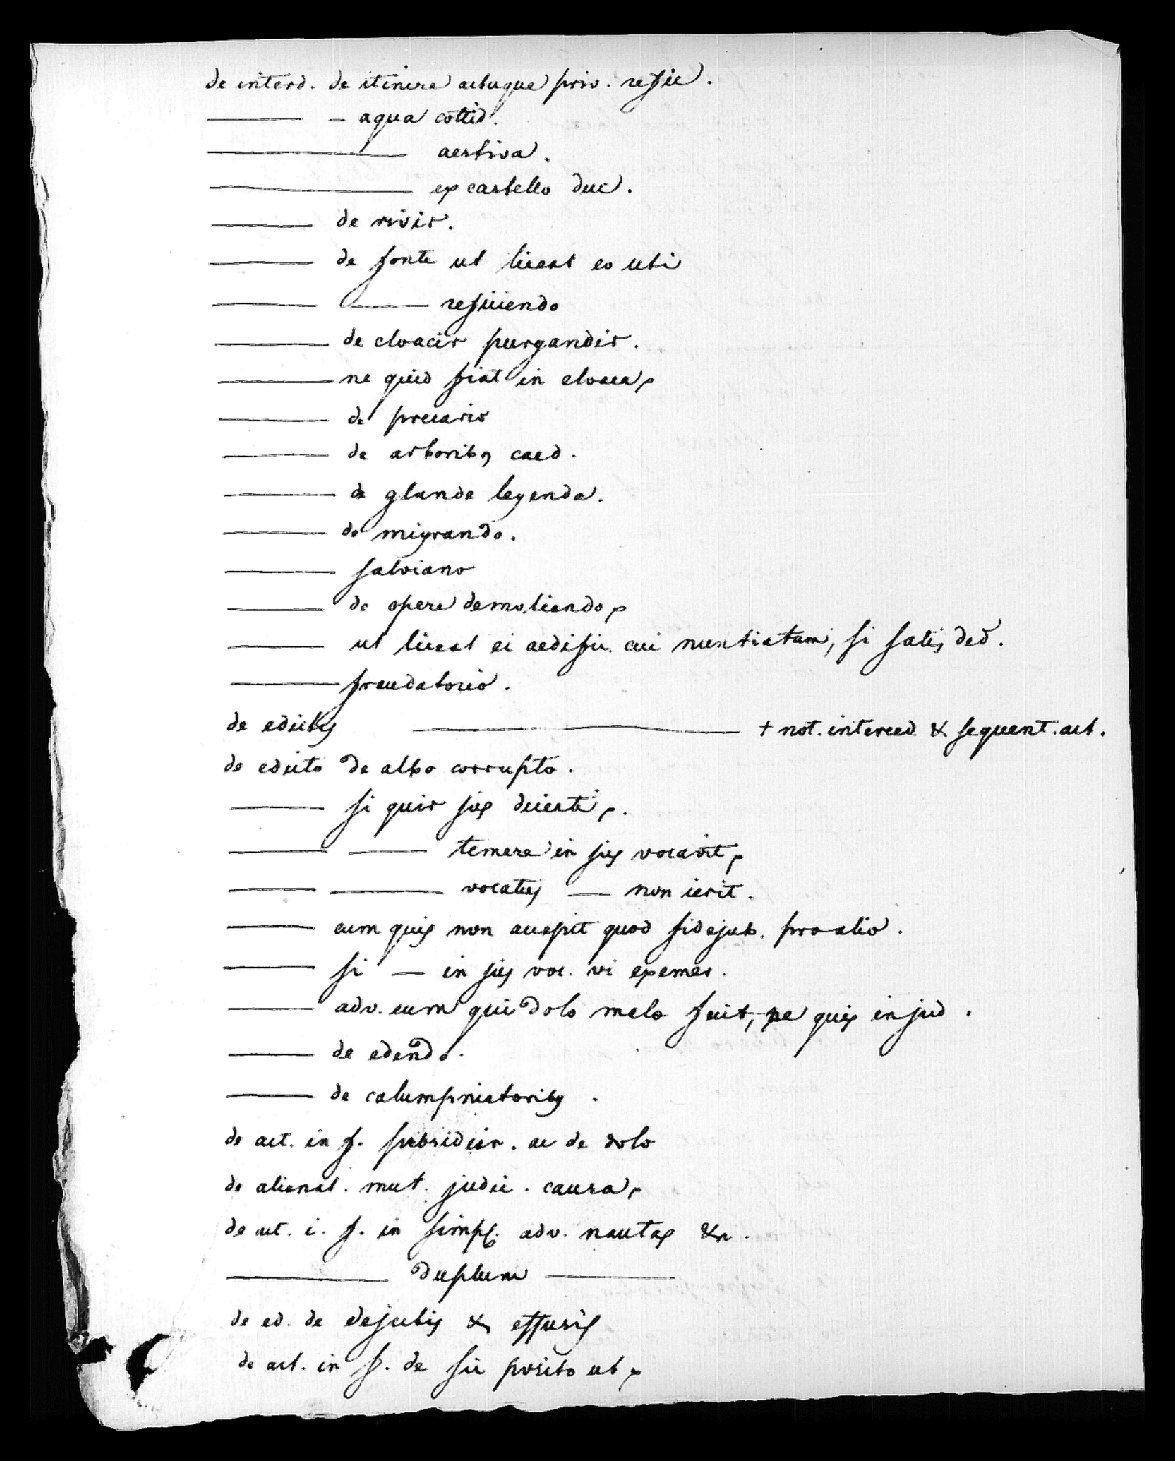 de interd. de itinere actuque priv. refic.
——— – aqua cottid.
——————— aestiva.
——————— ex castello duc.
——— de rivis.
——— de fonte ut liceat eo uti
——— —— reficiendo
——— de cloacis purgandis.
——— ne quid fiat in cloaca,
——— de precario
——— de arboribꝰ caed.
——— de glande legenda.
——— de migrando.
——— salviano
——— de opere demoliendo,
——— ut liceat ei aedific. cui nuntiatum, si satis ded.
——— fraudatorio.
de edictis ——————————— + not. interced & sequent. act.
de edicto de albo corrupto.
——— si quis jus dicenti,.
——— —— temere in jus vocavit,
——— ——— vocatus — non ierit.
——— eum quis non accepit quod fidejub. pro alio.
——— si — in jus voc. vi exemer.
——— adv. eum qui dolo malo fecit, ne quis in jud.
——— de edendo.
——— de calumpniatoribꝰ.
de act. in f. subsidiar. ac de dolo
de alienat. mut. judic. causa,
de act. i. f. in simpl. adv. nautas &c.
—————— duplum ————
de ed. de dejectis & effusis
de act. in f. de sic posito ut,